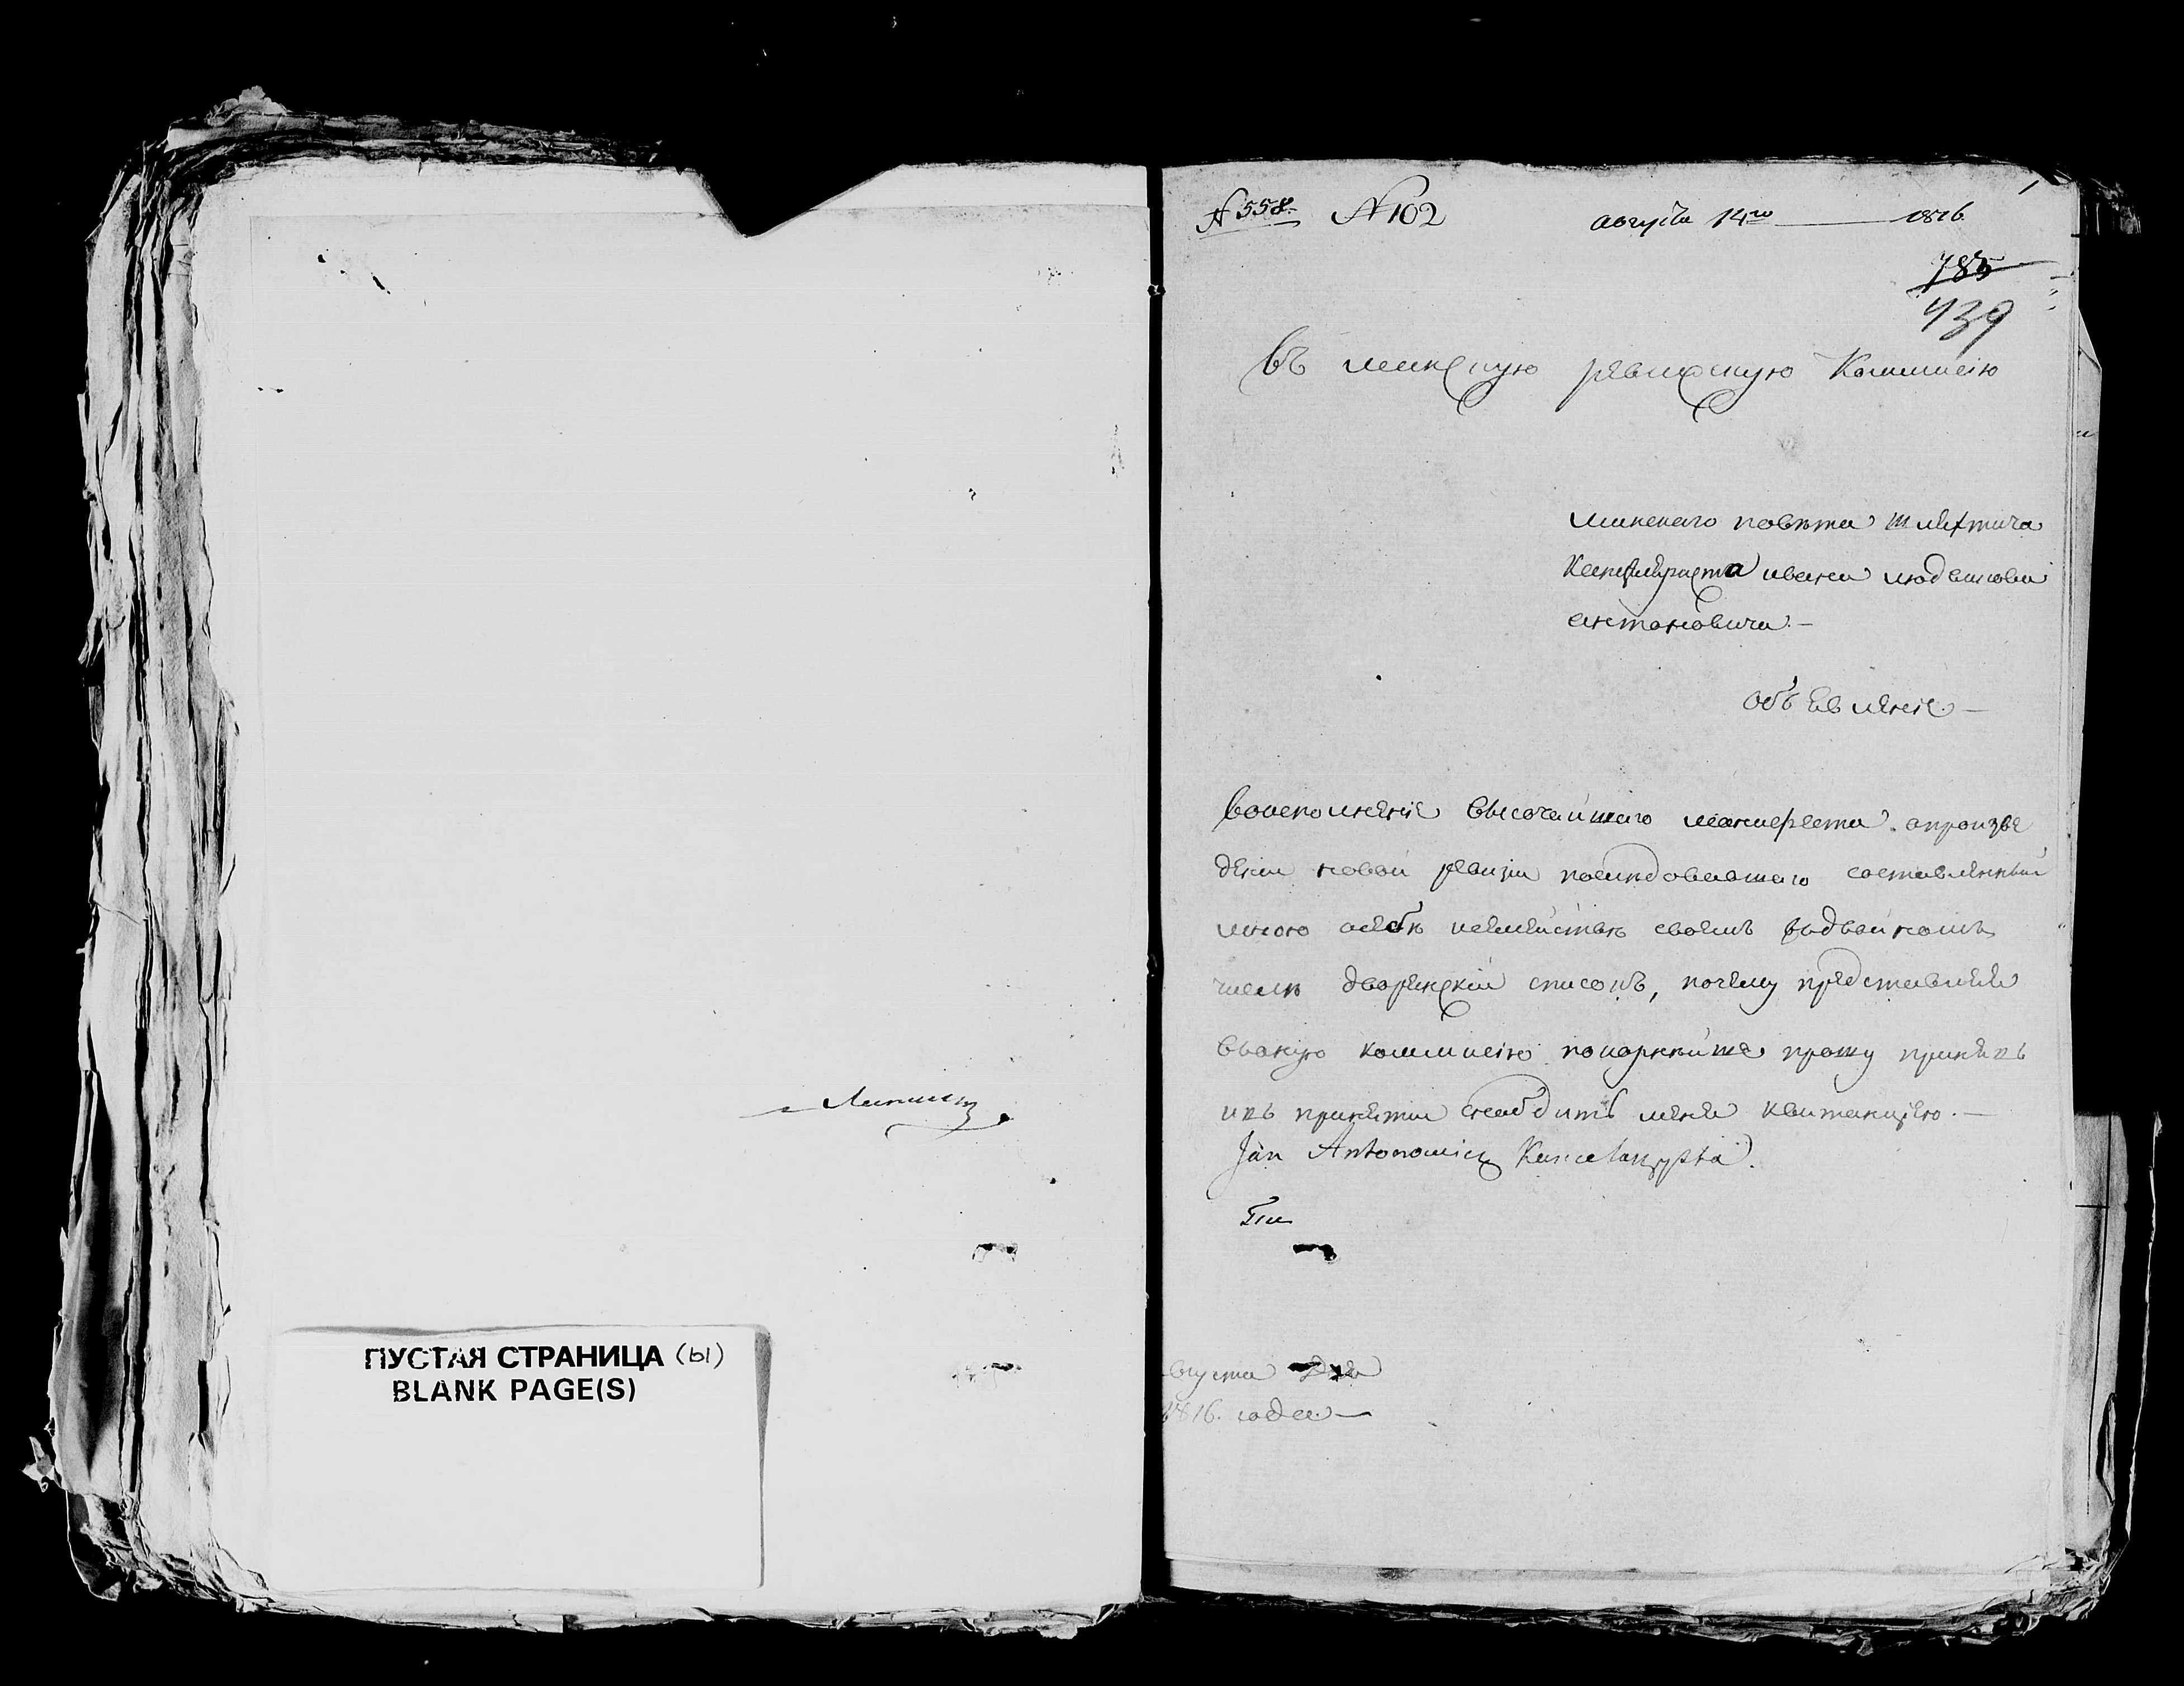 ПУСТАЯ СТРАНИЦА (ы)
BLANK PAGE(S)
N 558. N 102 августа 14го 1816
785
439
Въ минскую ревизскую Коммисію
минскаго повѣта шляхтича
Канцеляриста ивана людвикова
антоновича.—
объявленіе.—
Воисполненіе Высочайшаго манифеста. опроизве
деніи новой ревизіи последовавшаго составленный
мною осебѣ исемействѣ своемъ вдвойномъ
числѣ дворянскій списокъ, почему представляя
вьоную коммисію покорнѣйше прошу принять
ивъ принятіи снабдить меня квитанціею.—
Jan Antonowicz Kancelarzysta.
вгуста дня
1816. года.—